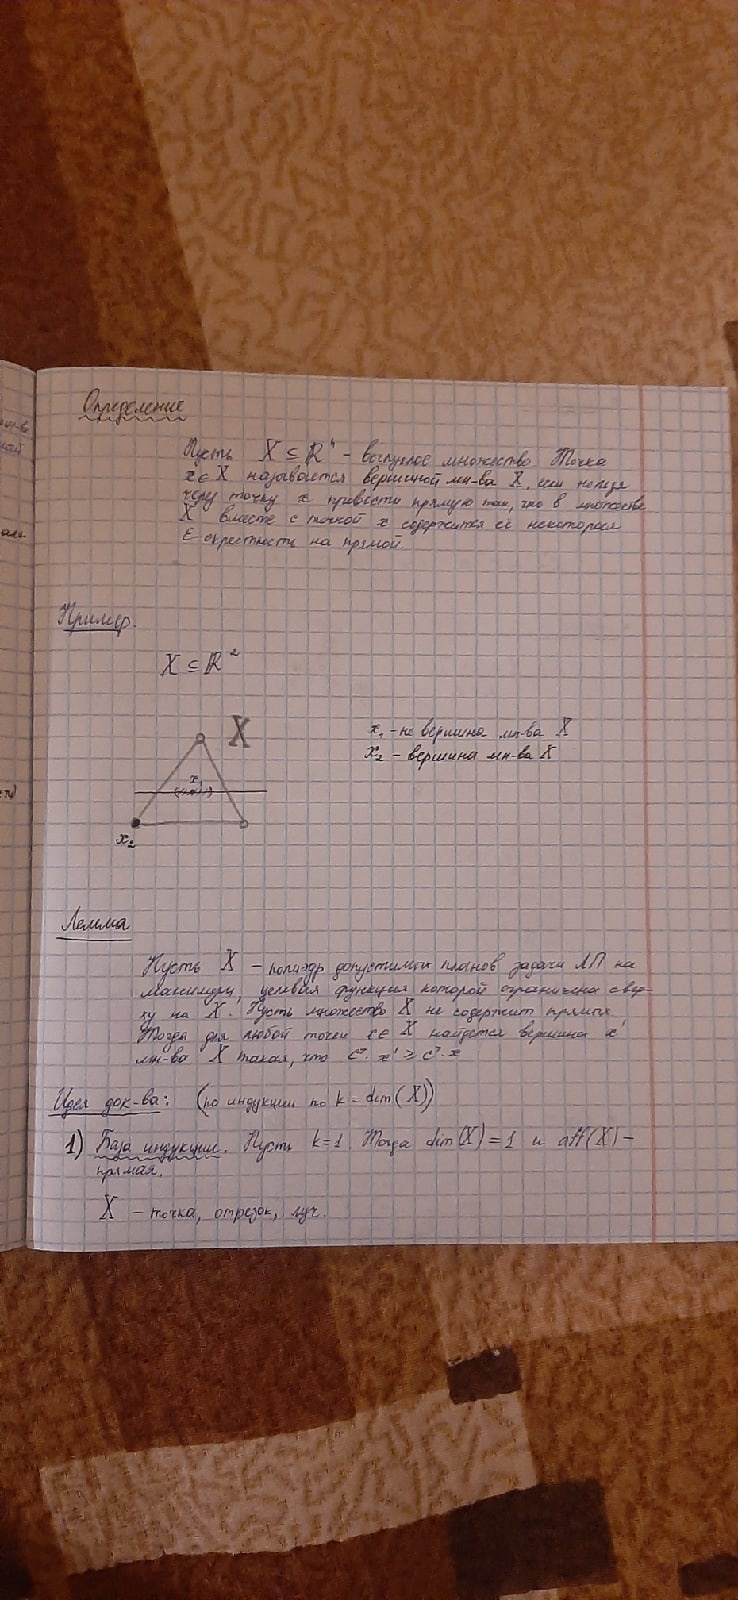 Определение
Пусть X ⊆ ℝⁿ - выпуклое множество. Точка
x ∈ X называется вершиной мн-ва X, если нельзя
через точку x провести прямую так, что в множестве
X вместе с точкой x содержится её некоторая
ε окрестность на прямой.
Пример.
X ⊆ ℝ²
X
x₁
x₂
x₁ - не вершина мн-ва X
x₂ - вершина мн-ва X
Лемма
Пусть X - полиэдр допустимых планов задачи ЛП на
максимум, целевая функция которой ограничена свер-
ху на X. Пусть множество X не содержит прямых.
Тогда для любой точки x ∈ X найдется вершина x'
мн-ва X такая, что cᵀ·x' ≥ cᵀ·x
Идея док-ва: (по индукции по k = dim(X))
1) База индукции. Пусть k=1. Тогда dim(X)=1 и aff(X) -
прямая.
X - точка, отрезок, луч.